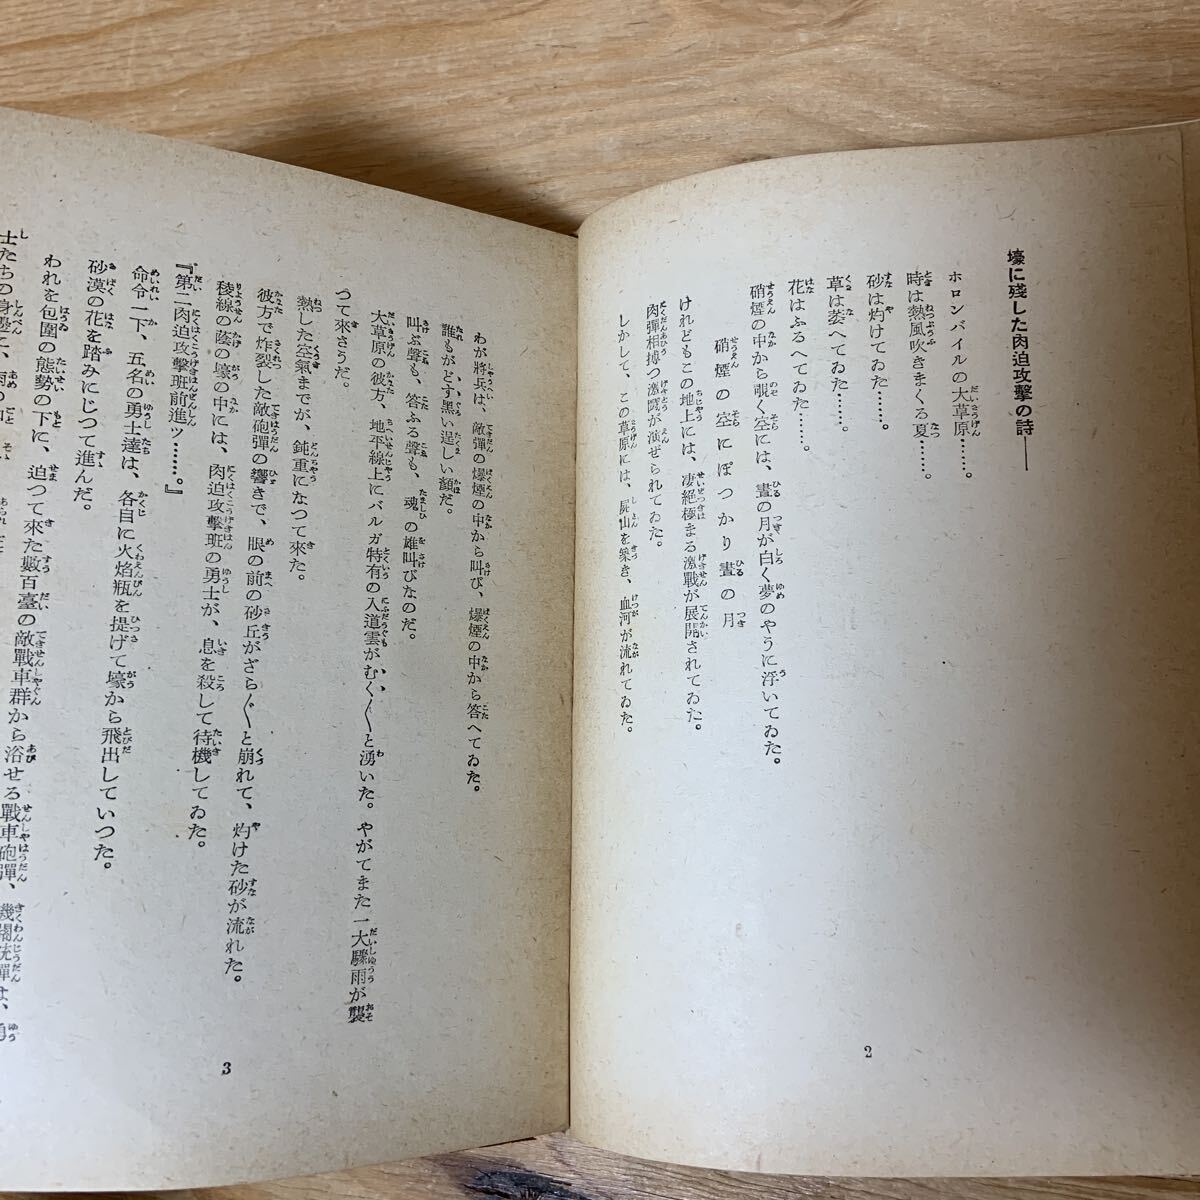 壕に残した肉迫攻撃の詩――
ホロンバイルの大草原……。
時は熱風吹きまくる夏……。
砂は灼けてゐた……。
草は萎へてゐた……。
花はふるへてゐた……。
硝煙の中から覗く空には、晝の月が白く夢のやうに浮いてゐた。
硝煙の空にぽつかり晝の月
けれどもこの地上には、凄絶極まる激戰が展開されてゐた。
肉彈相搏つ激鬪が演ぜられてゐた。
しかして、この草原には、屍山を築き、血河が流れてゐた。
2
わが將兵は、敵彈の爆煙の中から叫び、爆煙の中から答へてゐた。
誰もがどす黑い逞しい顏だ。
叫ぶ聲も、答ふる聲も、魂の雄叫びなのだ。
大草原の彼方、地平線上にバルガ特有の入道雲がむく〳〵と湧いた。やがてまた一大驟雨が襲
つて來さうだ。
熱した空氣までが、鈍重になつて來た。
彼方で炸裂した敵砲彈の響きで、眼の前の砂丘がざら〴〵と崩れて、灼けた砂が流れた。
稜線の蔭の壕の中には、肉迫攻撃班の勇士が、息を殺して待機してゐた。
『第二肉迫攻撃班前進ッ……。』
命令一下、五名の勇士達は、各自に火焰瓶を提げて壕から飛出していつた。
砂漠の花を踏みにじつて進んだ。
われを包圍の態勢の下に、迫つて來た數百臺の敵戰車群から浴せる戰車砲彈、機關銃彈は、勇
士たちの身邊に、雨の
3